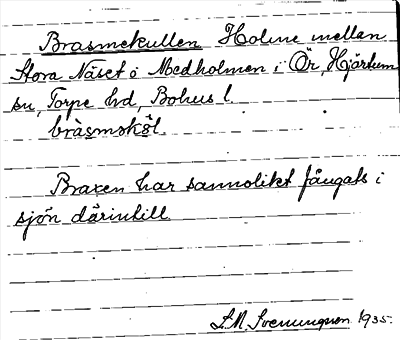 Brasmekullen Holme mellan
Stora Näset o Medholmen i Ör, Hjärtum
sn, Torpe hd, Bohus l.
bràsməkə̂l.
Braxen har sannolikt fångats i
sjön därintill.
S.M. Svenungsson 1935.